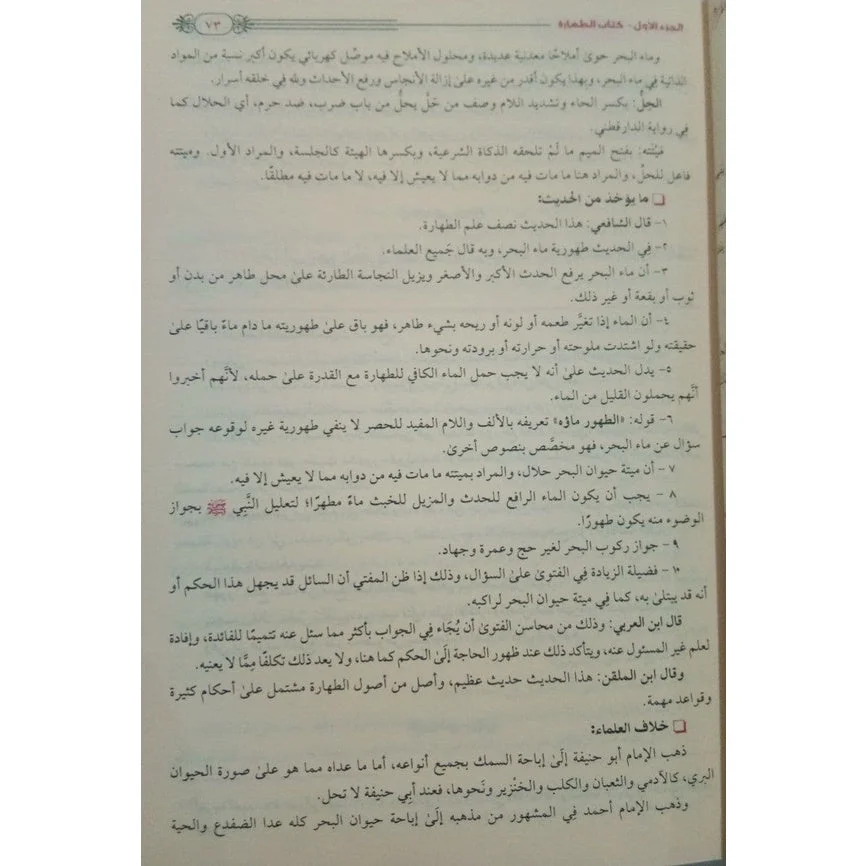 الجزء الأول - كتاب الطهارة
٧٣
وماء البحر حوى أملاحًا معدنية عديدة، ومحلول الأملاح فيه موصِّل كهربائي يكون أكبر نسبة من المواد
الذائبة في ماء البحر، وبهذا يكون أقدر من غيره على إزالة الأنجاس ورفع الأحداث ولله في خلقه أسرار.
الحِلُّ: بكسر الحاء وتشديد اللام وصف من حَلَّ يحلُّ من باب ضرب، ضد حرم، أي الحلال كما
في رواية الدارقطني.
مَيْتَته: بفتح الميم ما لَمْ تلحقه الذكاة الشرعية، وبكسرها الهيئة كالجلسة، والمراد الأول. وميتته
فاعل للحلّ، والمراد هنا ما مات فيه من دوابه مما لا يعيش إلا فيه، لا ما مات فيه مطلقًا.
ما يؤخذ من الحديث:
١- قال الشافعي: هذا الحديث نصف علم الطهارة.
٢- فِي الحديث طهورية ماء البحر، وبه قال جَميع العلماء.
٣- أن ماء البحر يرفع الحدث الأكبر والأصغر ويزيل النجاسة الطارئة علىٰ محل طاهر من بدن أو
ثوب أو بقعة أو غير ذلك.
٤- أن الماء إذا تغيَّر طعمه أو لونه أو ريحه بشيء طاهر، فهو باق علىٰ طهوريته ما دام ماءً باقيًا علىٰ
حقيقته ولو اشتدت ملوحته أو حرارته أو برودته ونحوها.
٥- يدل الحديث علىٰ أنه لا يجب حمل الماء الكافي للطهارة مع القدرة علىٰ حمله، لأنَّهم أخبروا
أنَّهم يحملون القليل من الماء.
٦- قوله: «الطهور ماؤه» تعريفه بالألف واللام المفيد للحصر لا ينفي طهورية غيره لوقوعه جواب
سؤال عن ماء البحر، فهو مخصَّص بنصوص أخرىٰ.
٧- أن ميتة حيوان البحر حلال، والمراد بميتته ما مات فيه من دوابه مما لا يعيش إلا فيه.
٨- يجب أن يكون الماء الرافع للحدث والمزيل للخبث ماءً مطهرًا؛ لتعليل النَّبِي ﷺ بجواز
الوضوء منه يكون طهورًا.
٩- جواز ركوب البحر لغير حج وعمرة وجهاد.
١٠- فضيلة الزيادة فِي الفتوىٰ علىٰ السؤال، وذلك إذا ظن المفتي أن السائل قد يجهل هذا الحكم أو
أنه قد يبتلىٰ به، كما فِي ميتة حيوان البحر لراكبه.
قال ابن العربي: وذلك من محاسن الفتوىٰ أن يُجَاء فِي الجواب بأكثر مما سئل عنه تتميمًا للفائدة، وإفادة
لعلم غير المسئول عنه، ويتأكد ذلك عند ظهور الحاجة إلَىٰ الحكم كما هنا، ولا يعد ذلك تكلفًا مِمَّا لا يعنيه.
وقال ابن الملقن: هذا الحديث حديث عظيم، وأصل من أصول الطهارة مشتمل علىٰ أحكام كثيرة
وقواعد مهمة.
خلاف العلماء:
ذهب الإمام أبو حنيفة إلَىٰ إباحة السمك بجميع أنواعه، أما ما عداه مما هو علىٰ صورة الحيوان
البري، كالآدمي والثعبان والكلب والخنْزير ونَحوها، فعند أبِي حنيفة لا تحل.
وذهب الإمام أحمد فِي المشهور من مذهبه إلَىٰ إباحة حيوان البحر كله عدا الضفدع والحية